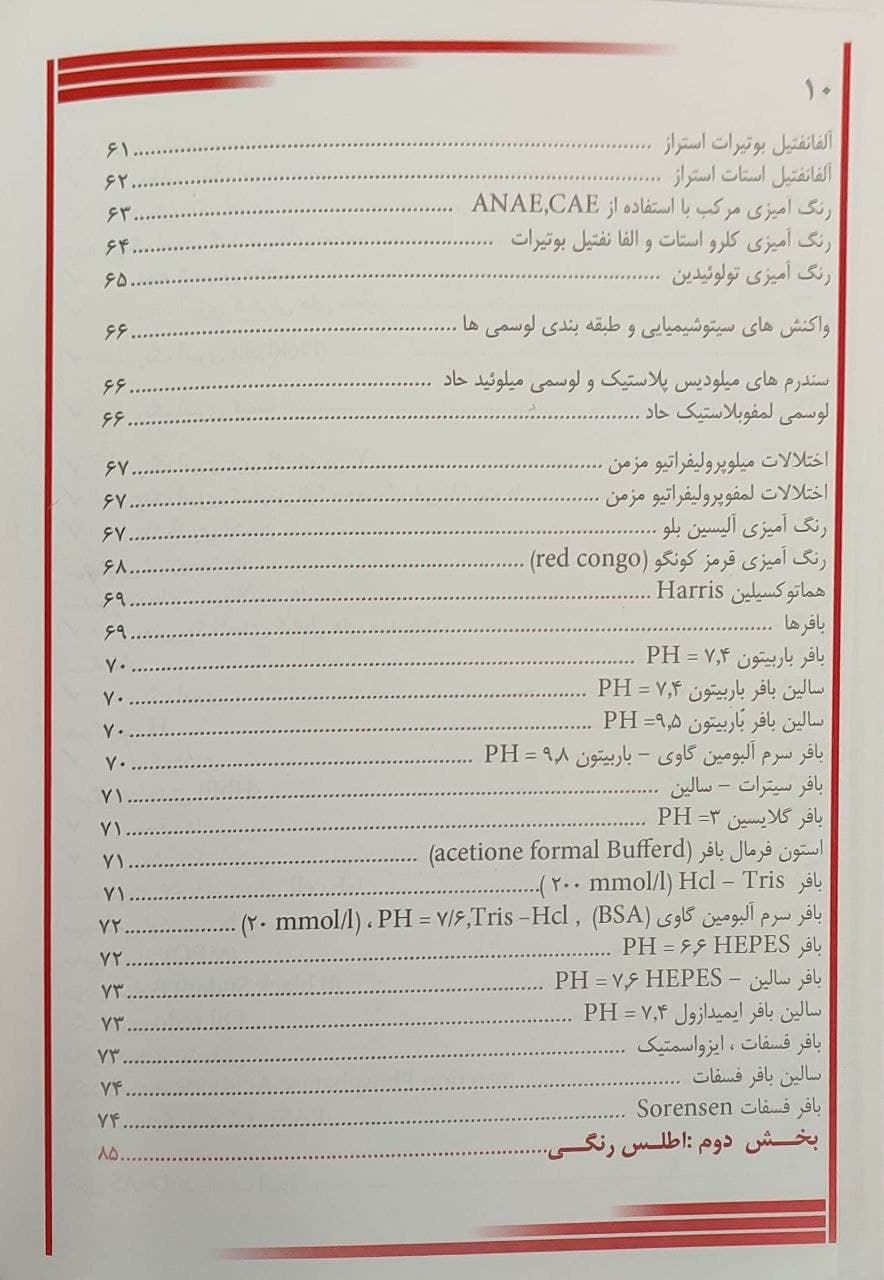 ۱۰
آلفانفتیل بوتیرات استراز ........ ۶۱
آلفانفتیل استات استراز ........ ۶۲
رنگ آمیزی مرکب با استفاده از ANAE,CAE ........ ۶۳
رنگ آمیزی کلرو استات و الفا نفتیل بوتیرات ........ ۶۴
رنگ آمیزی تولوئیدین ........ ۶۵
واکنش های سیتوشیمیایی و طبقه بندی لوسمی ها ........ ۶۶
سندرم های میلودیس پلاستیک و لوسمی میلوئید حاد ........ ۶۶
لوسمی لمفوبلاستیک حاد ........ ۶۶
اختلالات میلوپرولیفراتیو مزمن ........ ۶۷
اختلالات لمفوپرولیفراتیو مزمن ........ ۶۷
رنگ آمیزی آلیسین بلو ........ ۶۷
رنگ آمیزی قرمز کونگو (red congo) ........ ۶۸
هماتوکسیلین Harris ........ ۶۹
بافرها ........ ۶۹
بافر باربیتون PH = ۷,۴ ........ ۷۰
سالین بافر باربیتون PH = ۷,۴ ........ ۷۰
سالین بافر باربیتون PH =۹,۵ ........ ۷۰
بافر سرم آلبومین گاوی – باربیتون PH = ۹,۸ ........ ۷۰
بافر سیترات – سالین ........ ۷۱
بافر گلایسین PH =۳ ........ ۷۱
استون فرمال بافر (acetione formal Bufferd) ........ ۷۱
بافر Hcl – Tris (۲۰۰ mmol/l) ........ ۷۱
بافر سرم آلبومین گاوی (BSA) , PH = ۷/۶,Tris –Hcl ، (۲۰ mmol/l) ........ ۷۲
بافر PH = ۶,۶ HEPES ........ ۷۲
بافر سالین – PH = ۷,۶ HEPES ........ ۷۳
سالین بافر ایمیدازول PH = ۷,۴ ........ ۷۳
بافر فسفات ، ایزواسمتیک ........ ۷۳
سالین بافر فسفات ........ ۷۴
بافر فسفات Sorensen ........ ۷۴
بخش دوم :اطلس رنگی ........ ۸۵